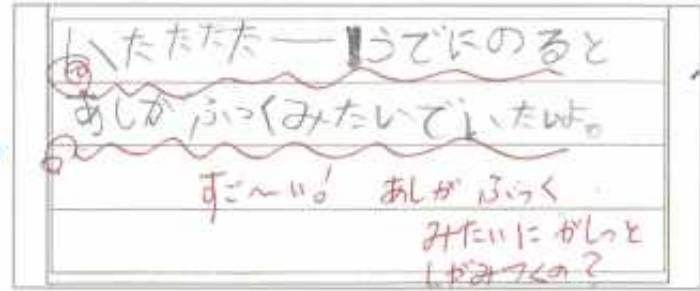 いたたたたー！うでにのると
あしがふっくみたいでいたいよ。
すご〜い！ あしが ふっく
みたいに がしっと
しがみつくの？